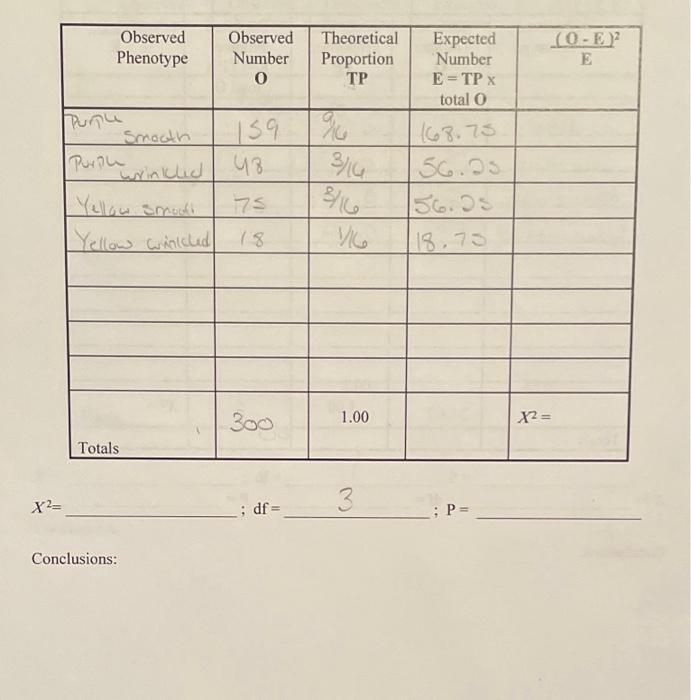 Observed Observed Theoretical Expected (O - E)²
Phenotype Number Proportion Number E
O TP E = TP x
total O
Purple
Smooth 159 9/16 168.75
Purple
wrinkled 48 3/16 56.25
Yellow smooth 75 3/16 56.25
Yellow wrinkled 18 1/16 18.75
300 1.00 X² =
Totals
X²= ; df = 3 ; P =
Conclusions: